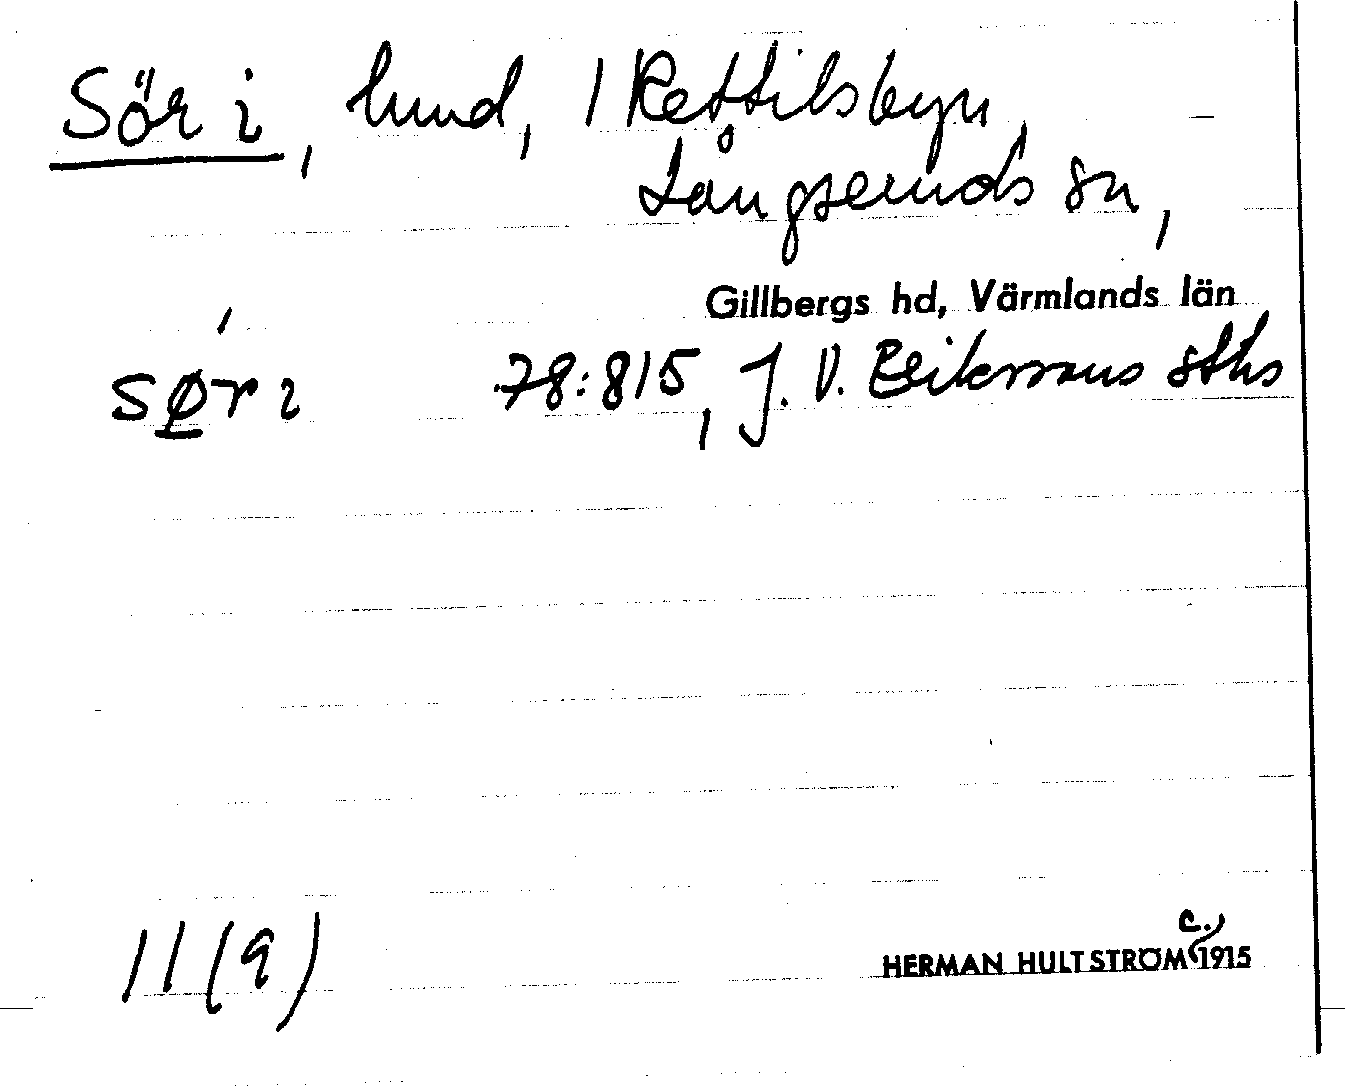 Sör i, lund, 1 Kettilsbyn,
Långseruds sn,
Gillbergs hd, Värmlands län
sør i 78:815, J. V. Erikssons sths
11(9)
HERMAN HULTSTRÖM c. 1915